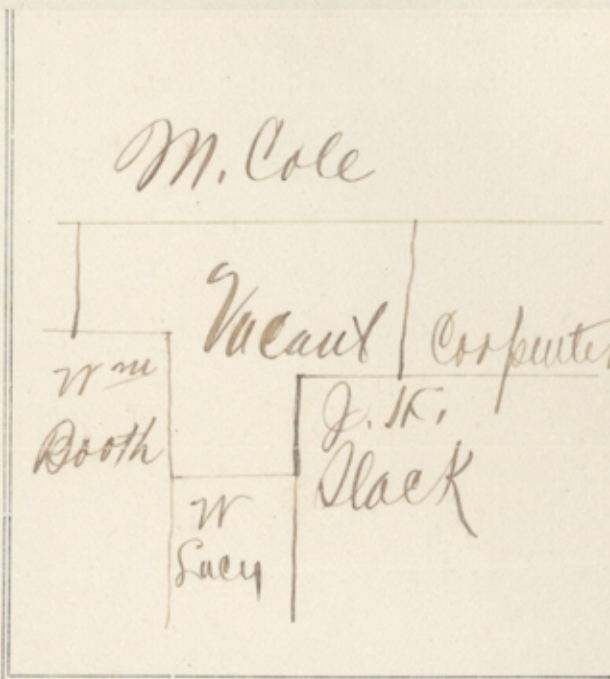 M. Cole
Vacant
Carpenter
Wm
Booth
J. K.
Slack
W
Lucy